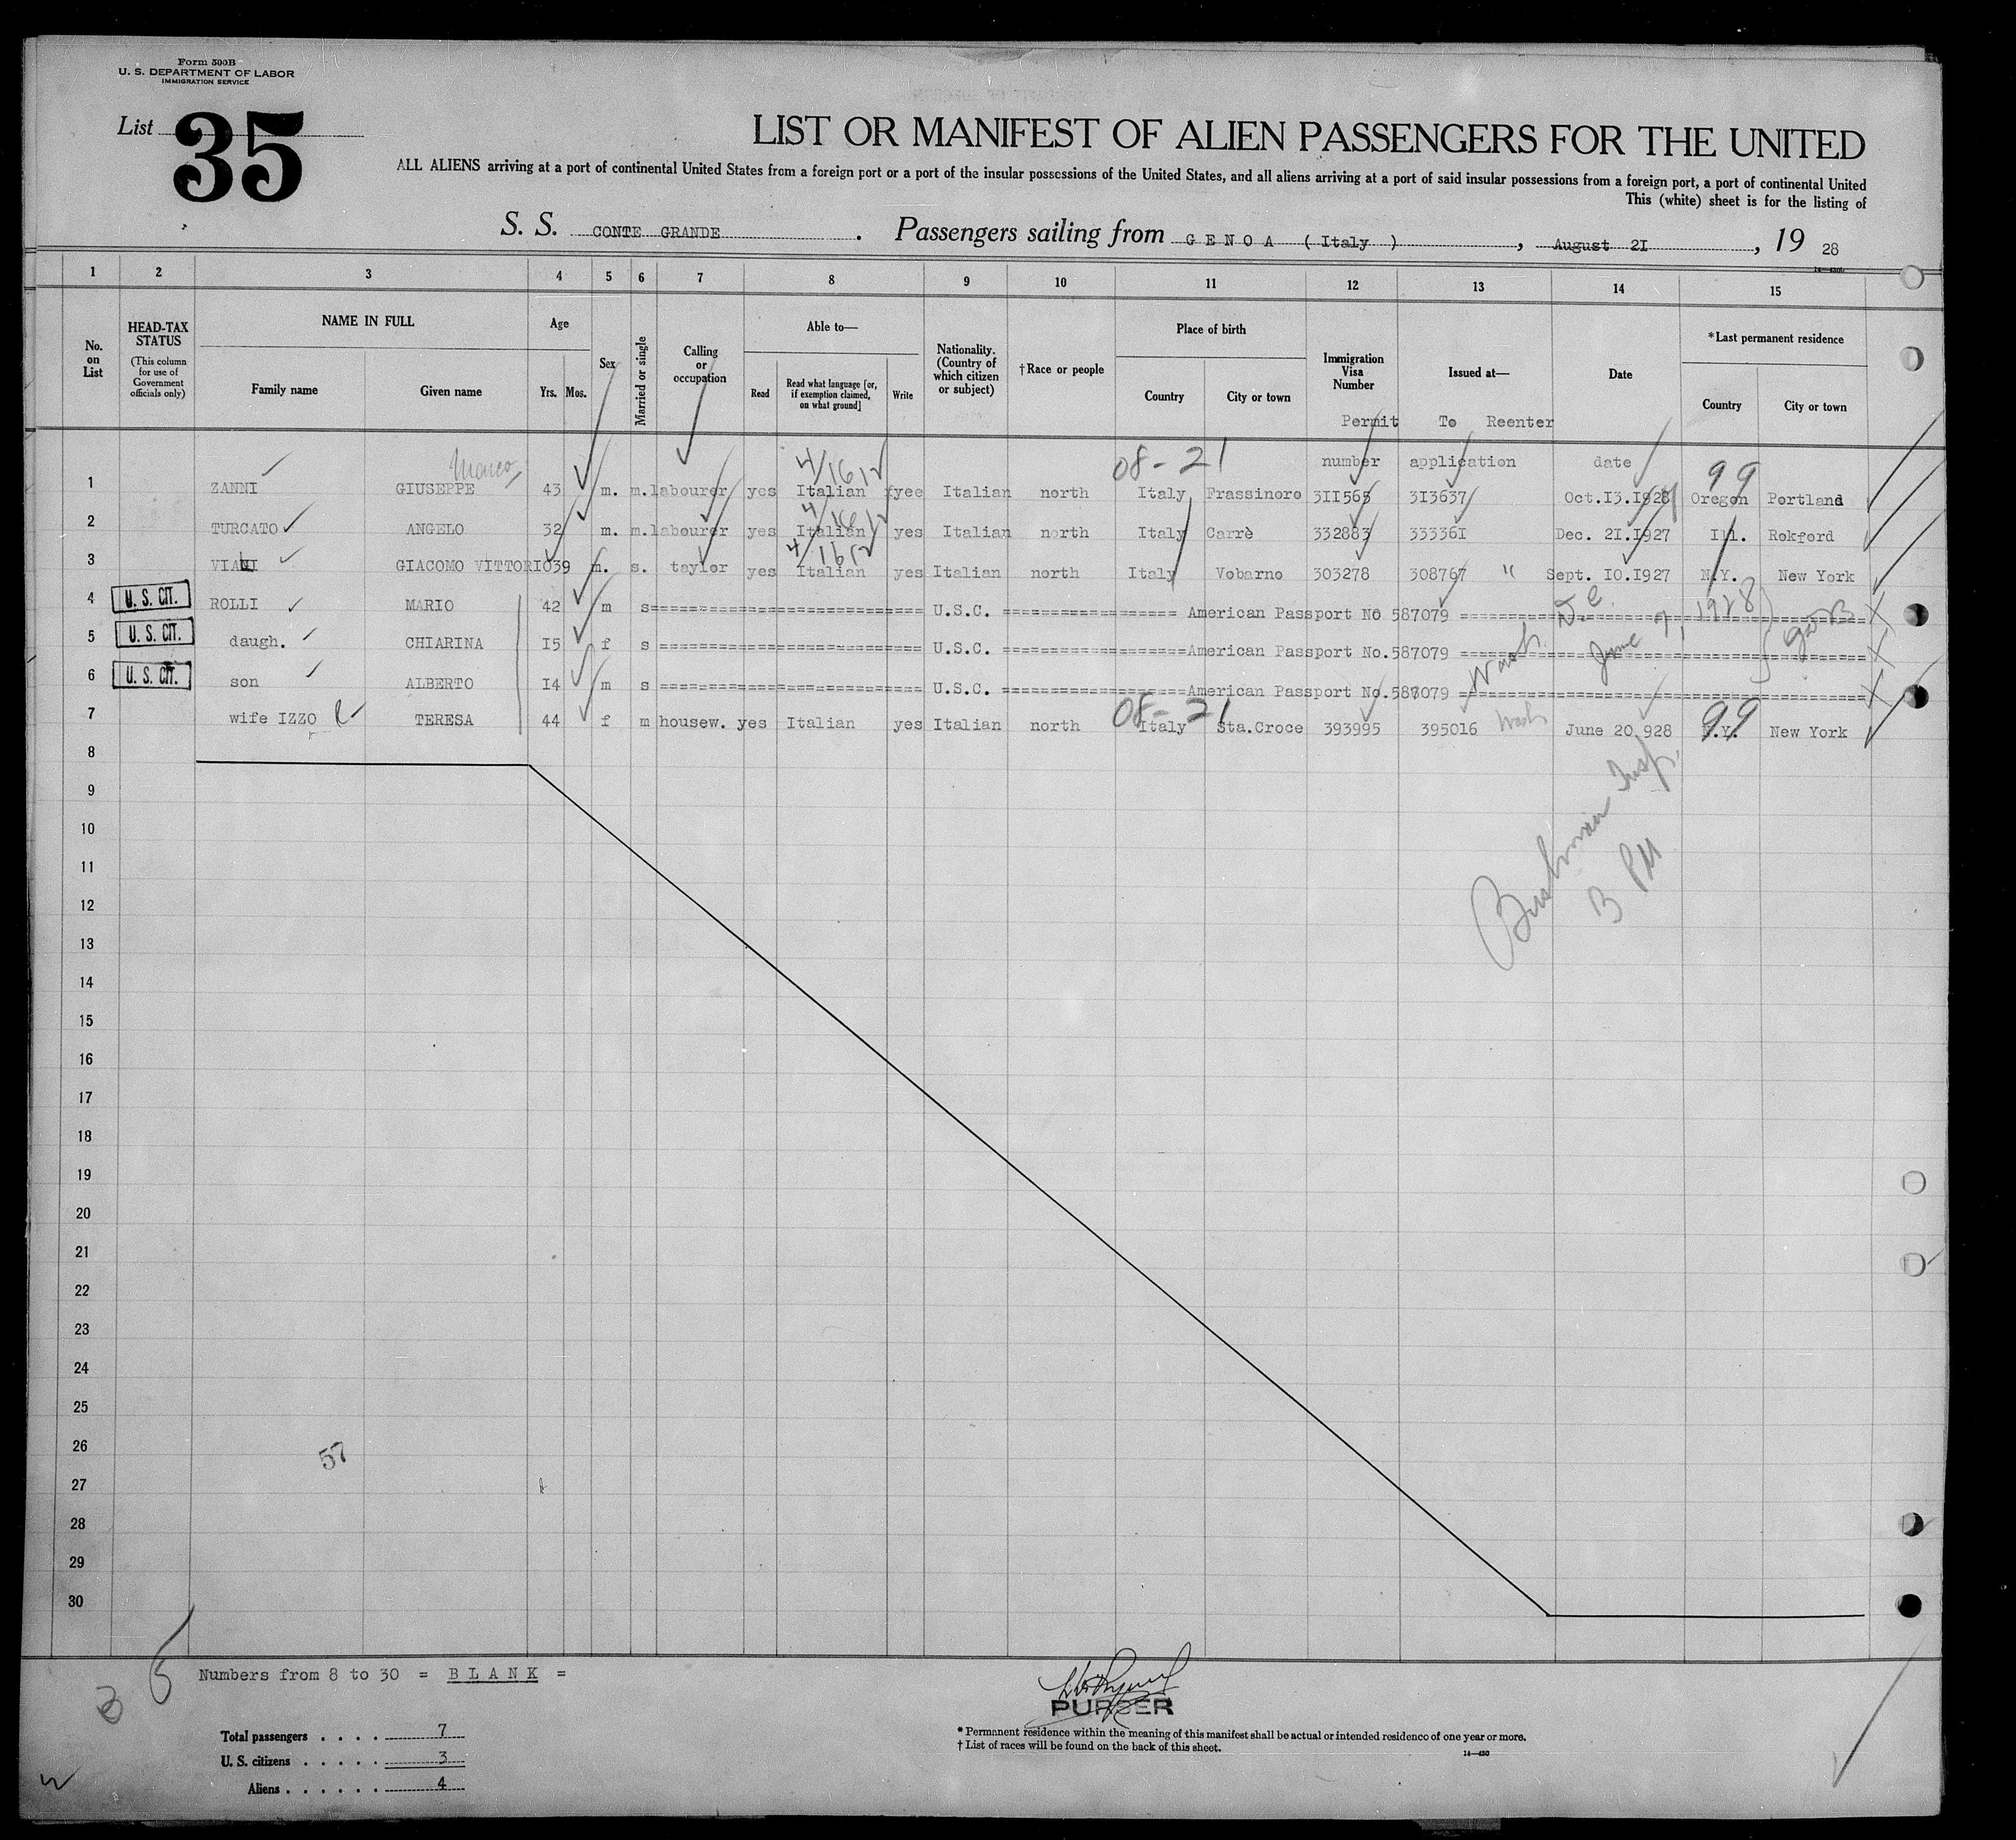 Form 500B
U. S. DEPARTMENT OF LABOR
IMMIGRATION SERVICE
List 35
LIST OR MANIFEST OF ALIEN PASSENGERS FOR THE UNITED
ALL ALIENS arriving at a port of continental United States from a foreign port or a port of the insular possessions of the United States, and all aliens arriving at a port of said insular possessions from a foreign port, a port of continental United
This (white) sheet is for the listing of
S. S. CONTE GRANDE . Passengers sailing from G E N O A ( Italy ) , August 2I , 19 28
1 2 3 4 5 6 7 8 9 10 11 12 13 14 15
No. on List
HEAD-TAX STATUS
(This column for use of Government officials only)
NAME IN FULL
Family name Given name
Age
Yrs. Mos.
Sex
Married or single
Calling or occupation
Able to—
Read Read what language [or, if exemption claimed, on what ground] Write
Nationality. (Country of which citizen or subject)
†Race or people
Place of birth
Country City or town
Immigration Visa Number
Issued at—
Date
*Last permanent residence
Country City or town
Permit To Reenter
number application date
08-21 99
4/16/2
1 ZANNI GIUSEPPE 43 m. m. labourer yes Italian yee Italian north Italy Frassinoro 3II565 3I3637 Oct.I3.I928 Oregon Portland
2 TURCATO ANGELO 32 m. m. labourer yes Italian yes Italian north Italy Carrè 332883 33336I Dec. 2I.I927 Ill. Rokford
3 VIANI GIACOMO VITTORIO39 m. s. taylor yes Italian yes Italian north Italy Vobarno 303278 308767 " Sept. I0.I927 N.Y. New York
4 U. S. CIT. ROLLI MARIO 42 m s U.S.C. American Passport No 587079
5 U. S. CIT. daugh. CHIARINA I5 f s U.S.C. American Passport No.587079
6 U. S. CIT. son ALBERTO I4 m s U.S.C. American Passport No.587079
Wash. June 7, 1928
7 wife IZZO TERESA 44 f m housew. yes Italian yes Italian north Italy Sta.Croce 393995 3950I6 Wash June 20 928 N.Y. New York
08-21 99
8
9
10
11
12
13
14
15
16
17
18
19
20
21
22
23
24
25
26
27
28
29
30
Bushman Insp.
B PM
57
Numbers from 8 to 30 = B L A N K =
PURSER
Total passengers . . . . 7
U. S. citizens . . . . . 3
Aliens . . . . . . 4
* Permanent residence within the meaning of this manifest shall be actual or intended residence of one year or more.
† List of races will be found on the back of this sheet.
14—430